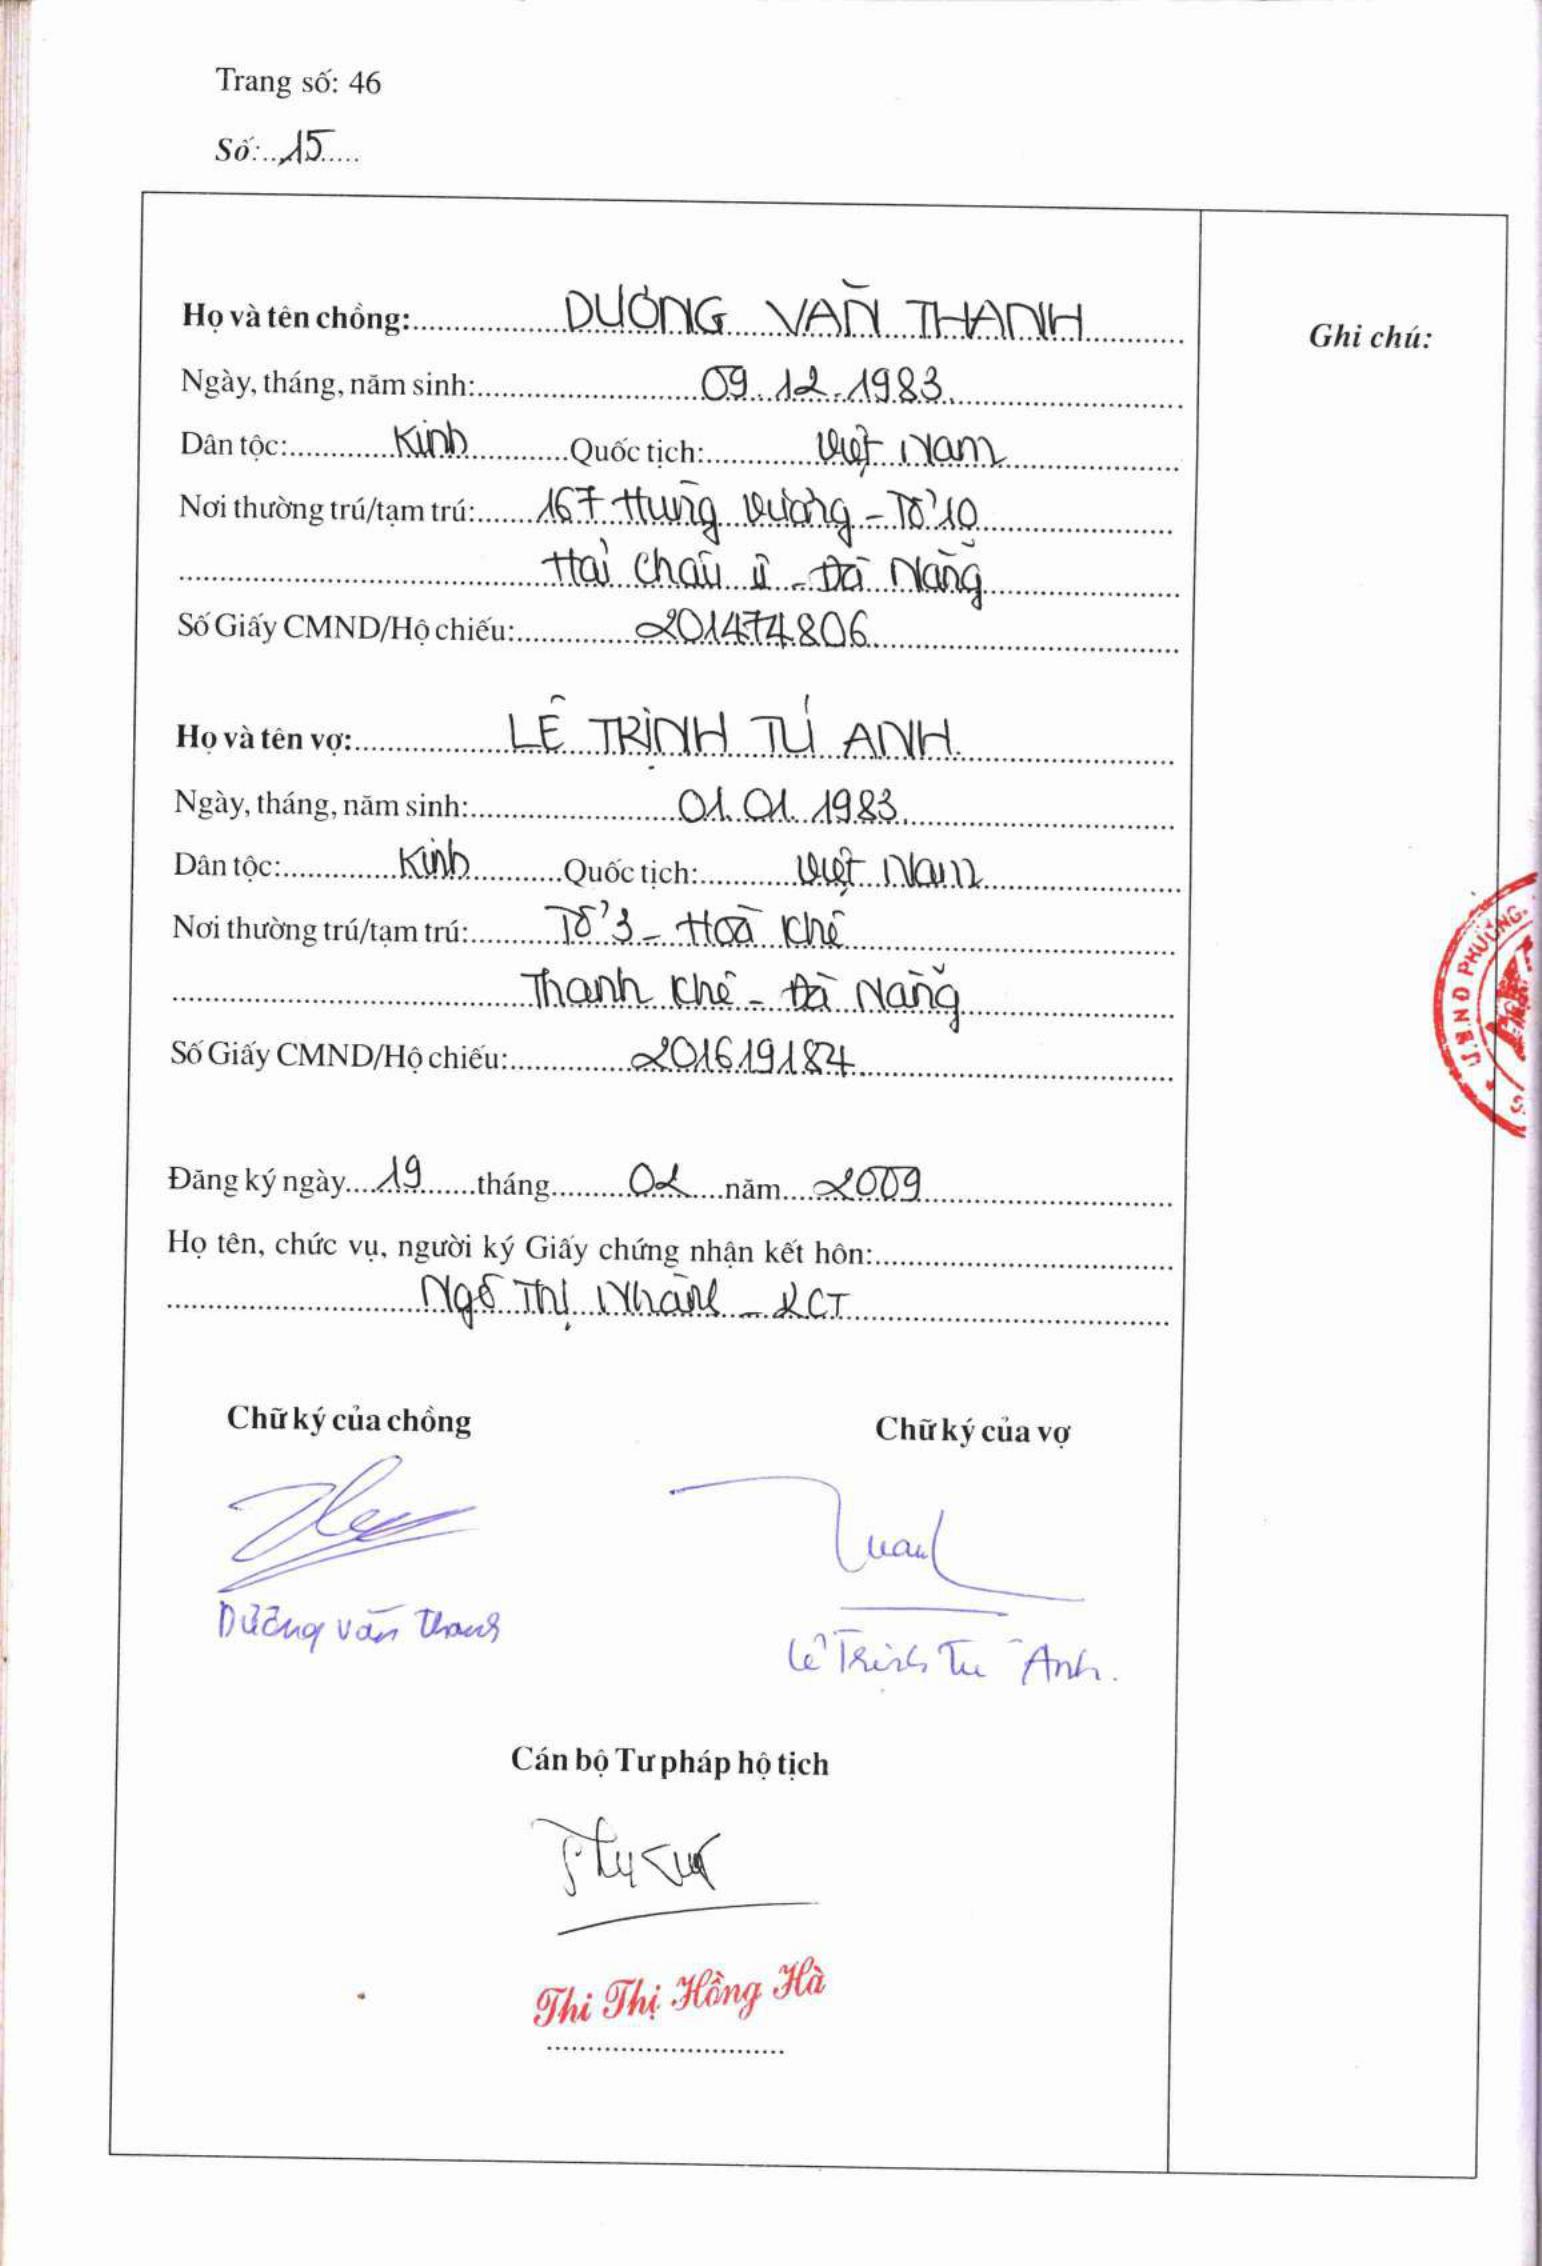 Trang số: 46
Số: 15
Họ và tên chồng: DƯƠNG VĂN THANH
Ghi chú:
Ngày, tháng, năm sinh: 09.12.1983
Dân tộc: Kinh Quốc tịch: Việt Nam
Nơi thường trú/tạm trú: 167 Hùng Vương - Tổ 10
Hải Châu II - Đà Nẵng
Số Giấy CMND/Hộ chiếu: 201474806
Họ và tên vợ: LÊ TRỊNH TÚ ANH
Ngày, tháng, năm sinh: 01.01.1983
Dân tộc: Kinh Quốc tịch: Việt Nam
Nơi thường trú/tạm trú: Tổ 3 - Hoà Khê
Thanh Khê - Đà Nẵng
Số Giấy CMND/Hộ chiếu: 201619184
U.B.N.D PHƯỜNG
Đăng ký ngày 19 tháng 02 năm 2009
Họ tên, chức vụ, người ký Giấy chứng nhận kết hôn:
Ngô Thị - KCT
Chữ ký của chồng Chữ ký của vợ
Dương Văn Thanh
Lê Trịnh Tú Anh.
Cán bộ Tư pháp hộ tịch
Thi Thị Hồng Hà